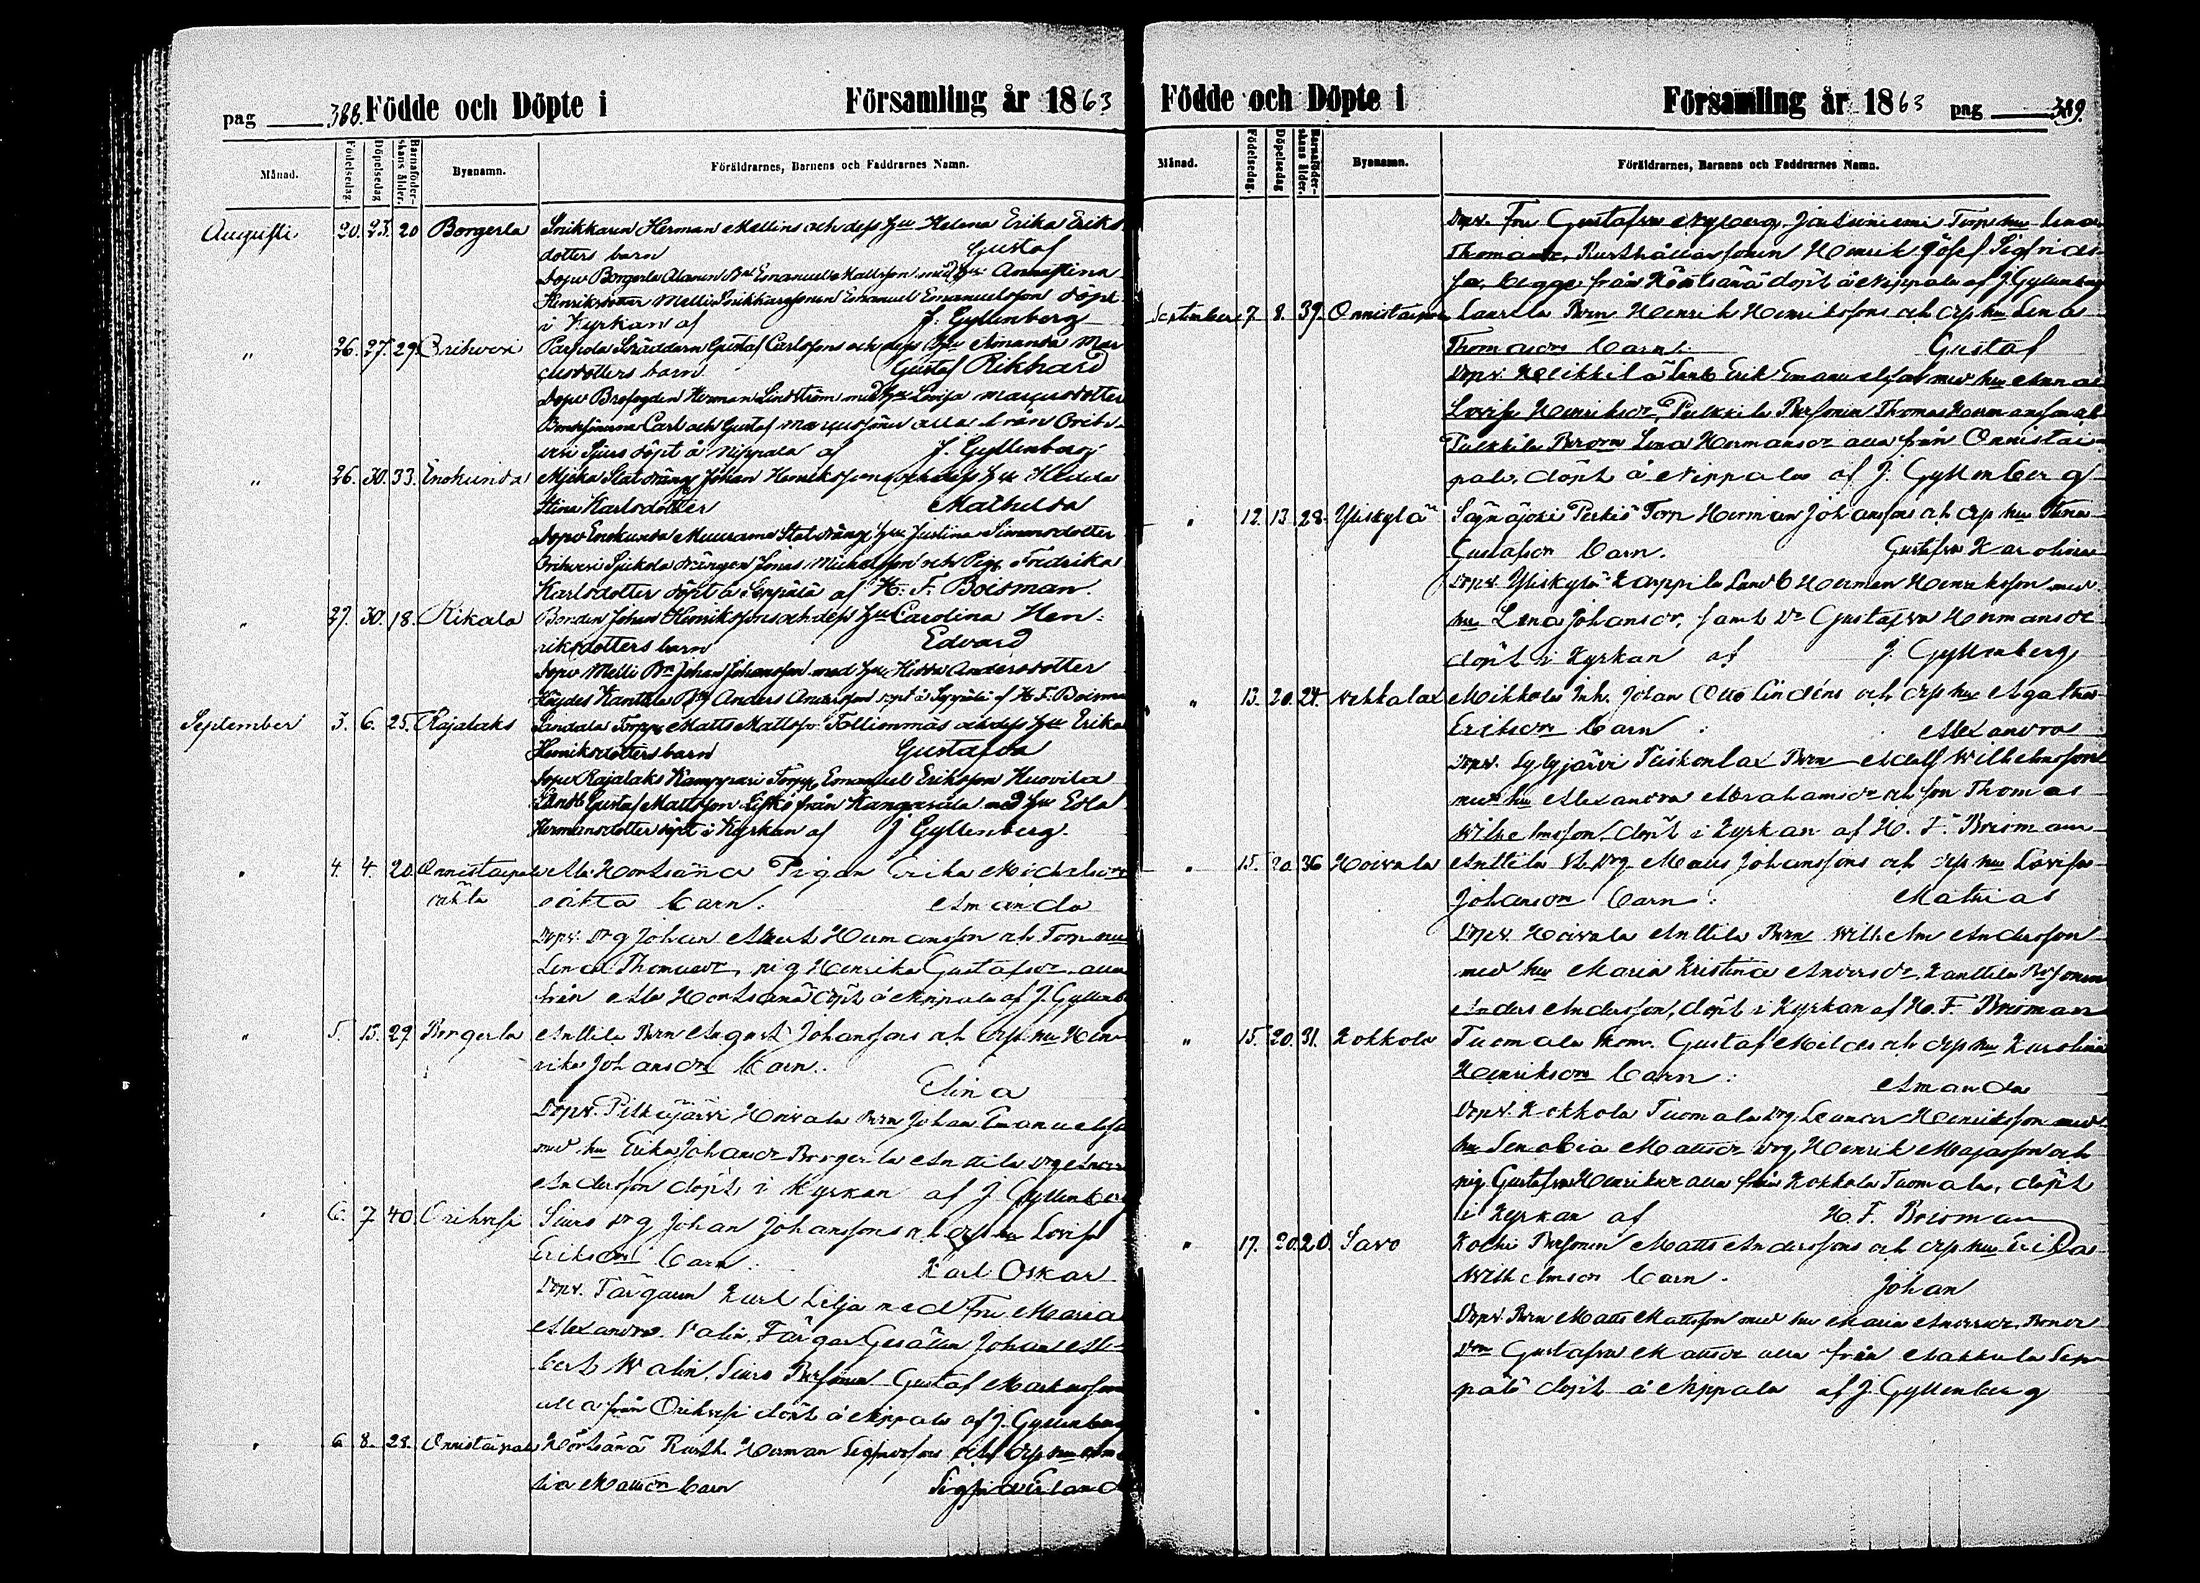 pag 388. Födde och Döpte i Församling år 1863
Månad. Födelsedag. Döpelsedag Barnaföderskans ålder. Byanamn. Föräldrarnes, Barnens och Faddrarnes Namn.
Augusti 20. 23. 20 Borgerla Snikkaren Herman Mellins och dess hu Helena Erika Eriks
dotters barn Gustaf
Dopv Borgerla Alanen Emanuel Mattsson med hu Annastina
Henriksdotter Melli Emanuel Emanuelsson döpt
i Kyrkan af J. Gyllenberg
" 26. 27. 29. Orihvesi Skräddarn Gustaf Carlssons och dess hu Amanda Mar
cusdotters barn Gustaf Rikhard
Dopv Brofogden Herman Lindström med hu Lovisa Marcusdotter
Bondsönerna Carl och Gustaf Marcussöner alla från Orih-
vesi Siurs döpt å Nippala af J. Gyllenberg
" 26. 30. 33. Enokunda Statdräng Johan Henrikssons och dess hu Hedda
Stina Karlsdotter Mathilda
Dopv Enokunda Muurame Statdräng hu Justina Simonsdotter
Orihvesi drängen Jonas Michelsson och Pig. Fredrika
Karlsdotter döpt å Seppälä af H. F. Boisman.
" 27. 30. 18. Hikala Bonden Johan Henrikssons och dess hu Carolina Hen-
riksdotters barn Edvard
Dopv Melli Bn Johan Johansson med hu Hedda Andersdotter
Anders Andersson döpt å Seppälä af H. F. Boisman
September 3. 6. 25. Rajalaks Torpp Matts Mattsson och dess hu Erika
Henriksdotters barn Gustafva
Dopv Rajalaks Kamppari Torpp. Emanuel Eriksson Huovila
Landb Gustaf Mattsson från Kangasala med hu Edla
Hermansdotter döpt i Kyrkan af J Gyllenberg.
" 4. 4. 20. Onnistaipale Ala Hörtsänä Pigan Erika Michelsdrs
oäkta oäkta barn. Amanda
Dopv. drg Johan Albert Hermansson och Torp. hu
Lena Thomasdr, pig Henrika Gustafsdr alla
från Ala Hörtsänä döpt å Nippala af J. Gyllenb
" 5. 13. 29. Borgerla Anttila Bn August Johanssons och dess hu Hen-
rika Johansdrs barn. Elina
Dopv. Pitkäjärvi Hoivala Bn Johan Emanuelss
med hu Erika Johansdr Borgerla Anttila drg Anders
Andersson döpt i Kyrkan af J Gyllenberg
" 6. 7. 40. Orihvesi Siurs drg Johan Johanssons och dess hu Lovisa
Eriksdrs barn. Karl Oskar
Dopv. Färgarn Karl Lilja med Fru Maria
Alexandra Valin, Färgar Gesällen Johan Al-
bert Walin, Siurs Bssonen Gustaf Markusson
alla från Orihvesi döpt å Nippala af J. Gyllenberg
" 6. 8. 28. Onnistaipale Hörtsänä Rusth. Herman Sigfridssons och dess hu
Mattsdrs barn Sigfrid
Födde och Döpte i Församling år 1863 pag 389.
Månad. Födelsedag. Döpelsedag Barnaföderskans ålder. Byanamn. Föräldrarnes, Barnens och Faddrarnes Namn.
Dopv. Fru Gustafva Nyberg, Torp hu Lena
Thomasdr, Rusthållarsonen Henrik Josef Sigfrids
son, begge från Hörtsänä döpt å Nippala af J Gyllenberg
September 7. 8. 39. Onnistaipale Laurila Bn Henrik Henrikssons och dess hu Lena
Thomasdrs barn. Gustaf
Dopv. Heikkilä Landb Erik Emanuelsson med hu Anna
Lovisa Henriksdr, Pulkkila Bssonen Thomas Hermansson och
Pulkkila Bdrn Lena Hermansdr alla från Onnistai-
pale, döpt å Nippala af J. Gyllenberg
" 12. 13. 28. Yliskylä Säynäjoki Torp Herman Johanssons och dess hu Stina
Gustafsdrs barn. Gustafva Karolina
Dopv. Yliskylä Karppila Landb Herman Henriksson med
hu Lena Johansdr, samt dr Gustafva Hermansdr
döpt i Kyrkan af J. Gyllenberg
" 13. 20. 24. Vehkalax Mikkola Inh. Johan Otto Lindéns och dess hu Agatha
Eriksdrs barn. Alexandra
Dopv. Syvjärvi Bn Adolf Wilhelmsson
med hu Alexandra Abrahamsdr och son Thomas
Wilhelmsson, döpt i Kyrkan af H. F. Boisman
" 15. 20. 36 Hoivala Anttila St drg Matts Johanssons och dess hu Lovisa
Johansdrs barn. Mathias
Dopv. Hoivala Anttila Bn Wilhelm Andersson
med hu Maria Kristina Andersdr, Kanttila Bssonen
Anders Andersson, döpt i Kyrkan af H. F. Boisman
" 15. 20. 31. Kokkola Tuomala Gustaf och dess hu Karolina
Henriksdrs barn: Amanda
Dopv. Kokkola Tuomala drg Leander Henriksson med
hu Senobia Mattsdr drg Henrik och
pig Gustafva Henriksdr alla från Kokkola Tuomala, döpt
i Kyrkan af H. F. Boisman
" 17. 20. 20. Savo Bssonen Matts Anderssons och dess hu Erika
Wilhelmsdrs barn. Johan
Dopv. Bn Matts Mattsson med hu Maria Andersdr, Bonde
drn Gustafva Mattsdr alla från Sep-
pälä döpt å Nippala af J. Gyllenberg